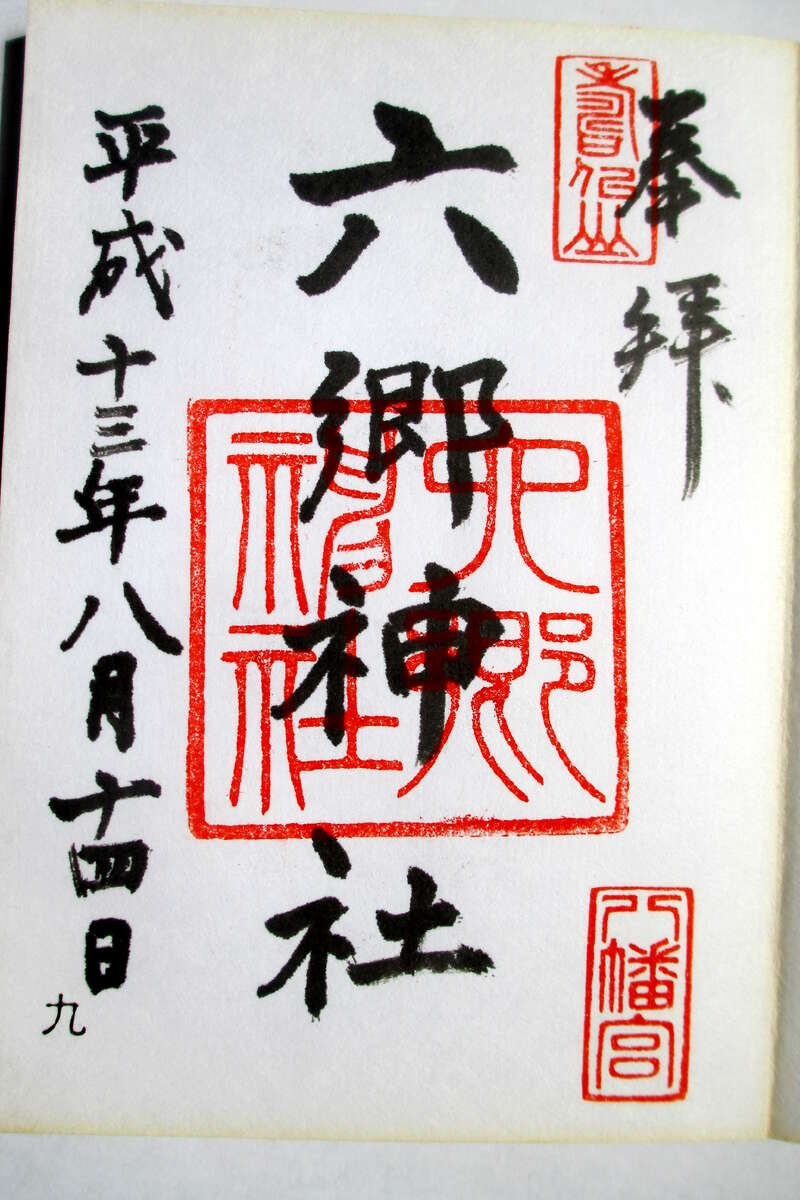 奉拝
六郷神社
六郷神社
八幡宮
平成十三年八月十四日
九